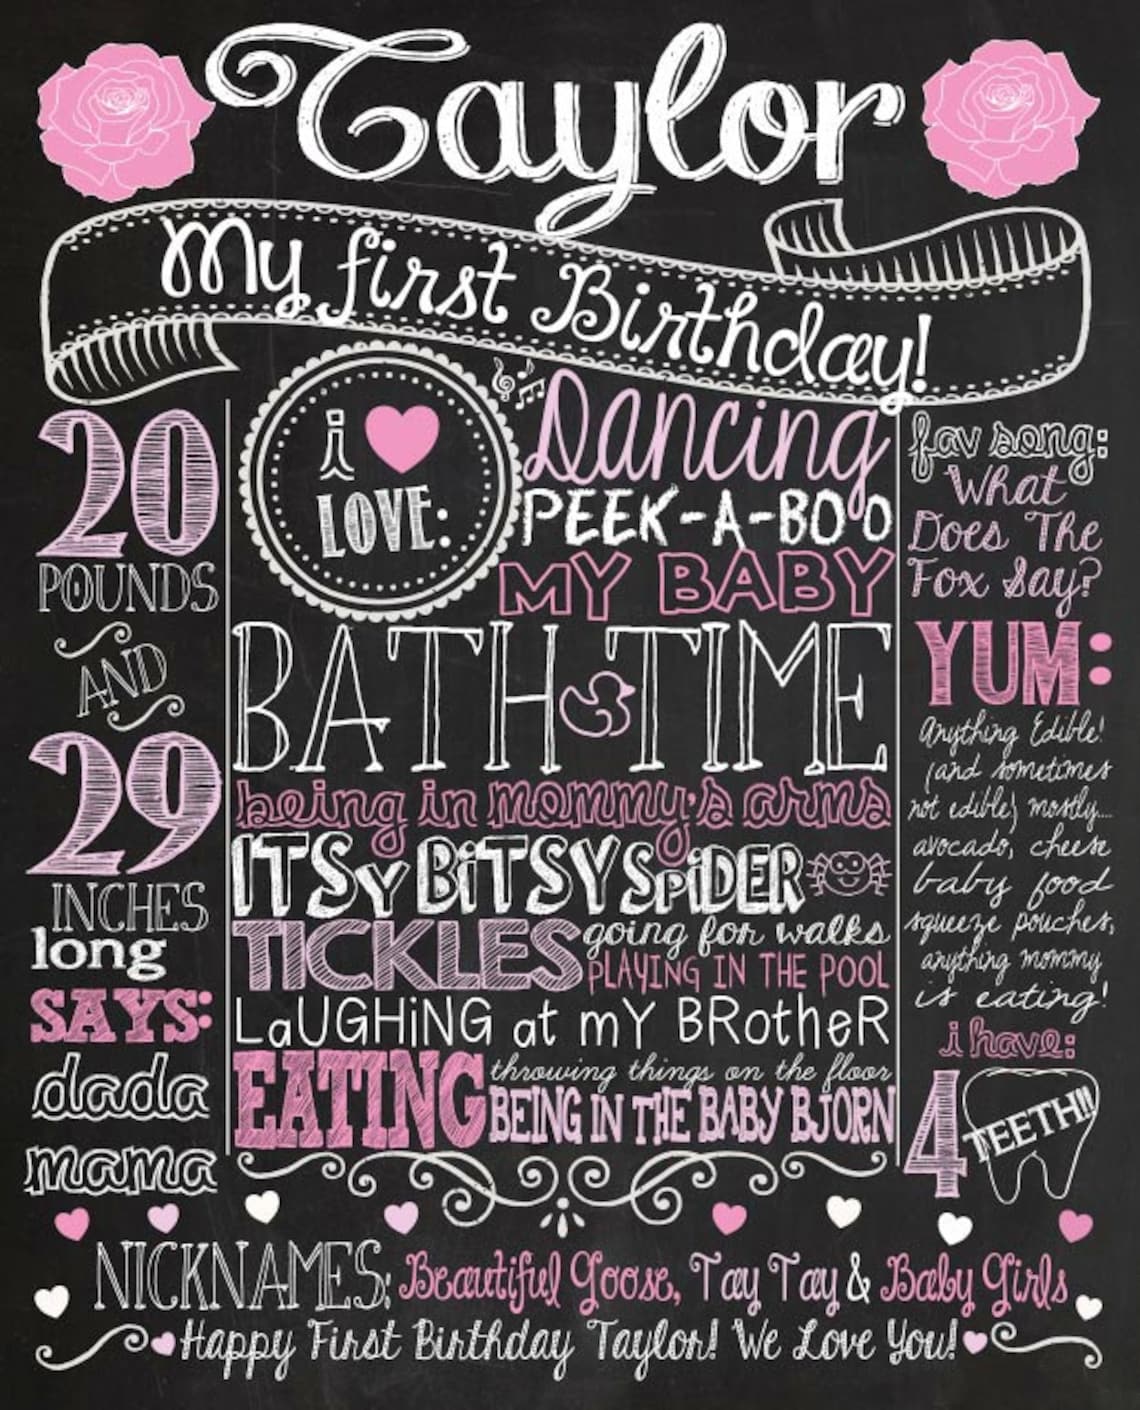 Taylor
My first Birthday!
20
POUNDS
AND
29
INCHES
long
SAYS:
dada
mama
i
LOVE:
Dancing
PEEK-A-BOO
MY BABY
BATH TIME
being in mommy's arms
ITSy BiTSY SpiDER
TICKLES
going for walks
PLAYING IN THE POOL
LaUGHiNG at mY BRotheR
EATING
throwing things on the floor
BEING IN THE BABY BJORN
fav song:
What
Does The
Fox Say?
YUM:
Anything Edible!
(and sometimes
not edible) mostly...
avocado, cheese
baby food
squeeze pouches,
anything mommy
is eating!
i have:
4 TEETH!!
NICKNAMES: Beautiful Goose, Tay Tay & Baby Girls
Happy First Birthday Taylor! We Love You!